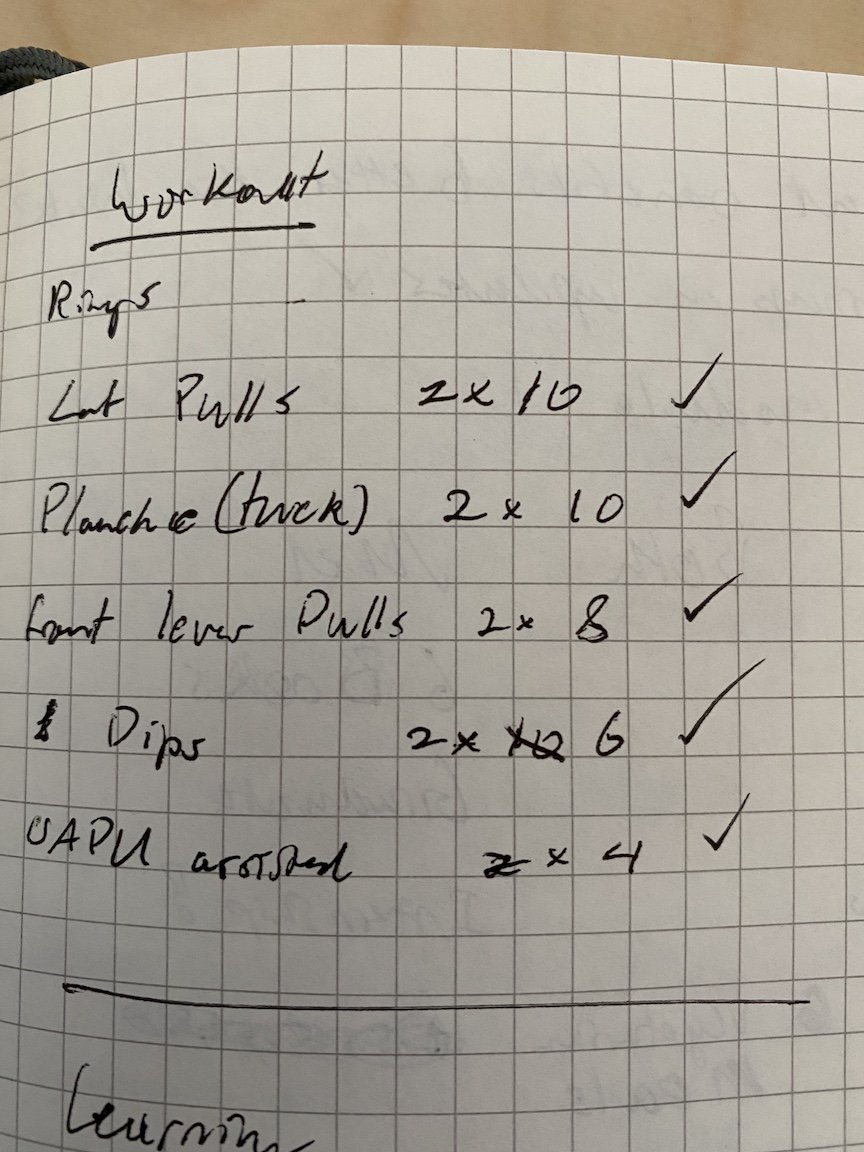 Workout
Rings
Lat Pulls 2x 10 ✓
Planche (tuck) 2 x 10 ✓
front lever Pulls 2x 8 ✓
Dips 2x 6 ✓
OAPU assisted 2 x 4 ✓
Learning